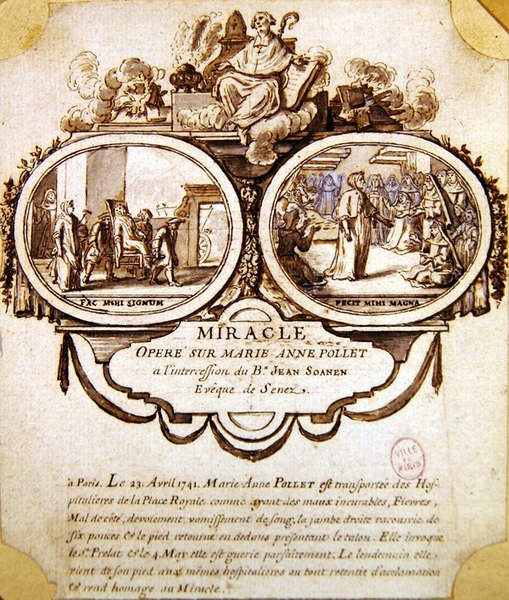 FAC MIHI SIGNUM
FECIT MIHI MAGNA
MIRACLE
OPERÉ SUR MARIE ANNE POLLET
a l'intercession du Bx. JEAN SOANEN
Evêque de Senez.
VILLE
DE
PARIS
à Paris. Le 23 Avril 1741. Marie-Anne POLLET est transportée des Hos-
pitalieres de la Place Royale comme ayant des maux incurables, Fievres,
Mal de côté, devoiement, vomissement de sang, la jambe droite racourcie de
six pouces & le pied retourné en dedans présentant le talon. Elle invoque
le St. Prelat & le 4 May elle est guerie parfaitement. Le lendemain elle
vient de son pied aux mêmes hospitalieres ou tout retentit d'acclamation
& rend homage au Miracle.